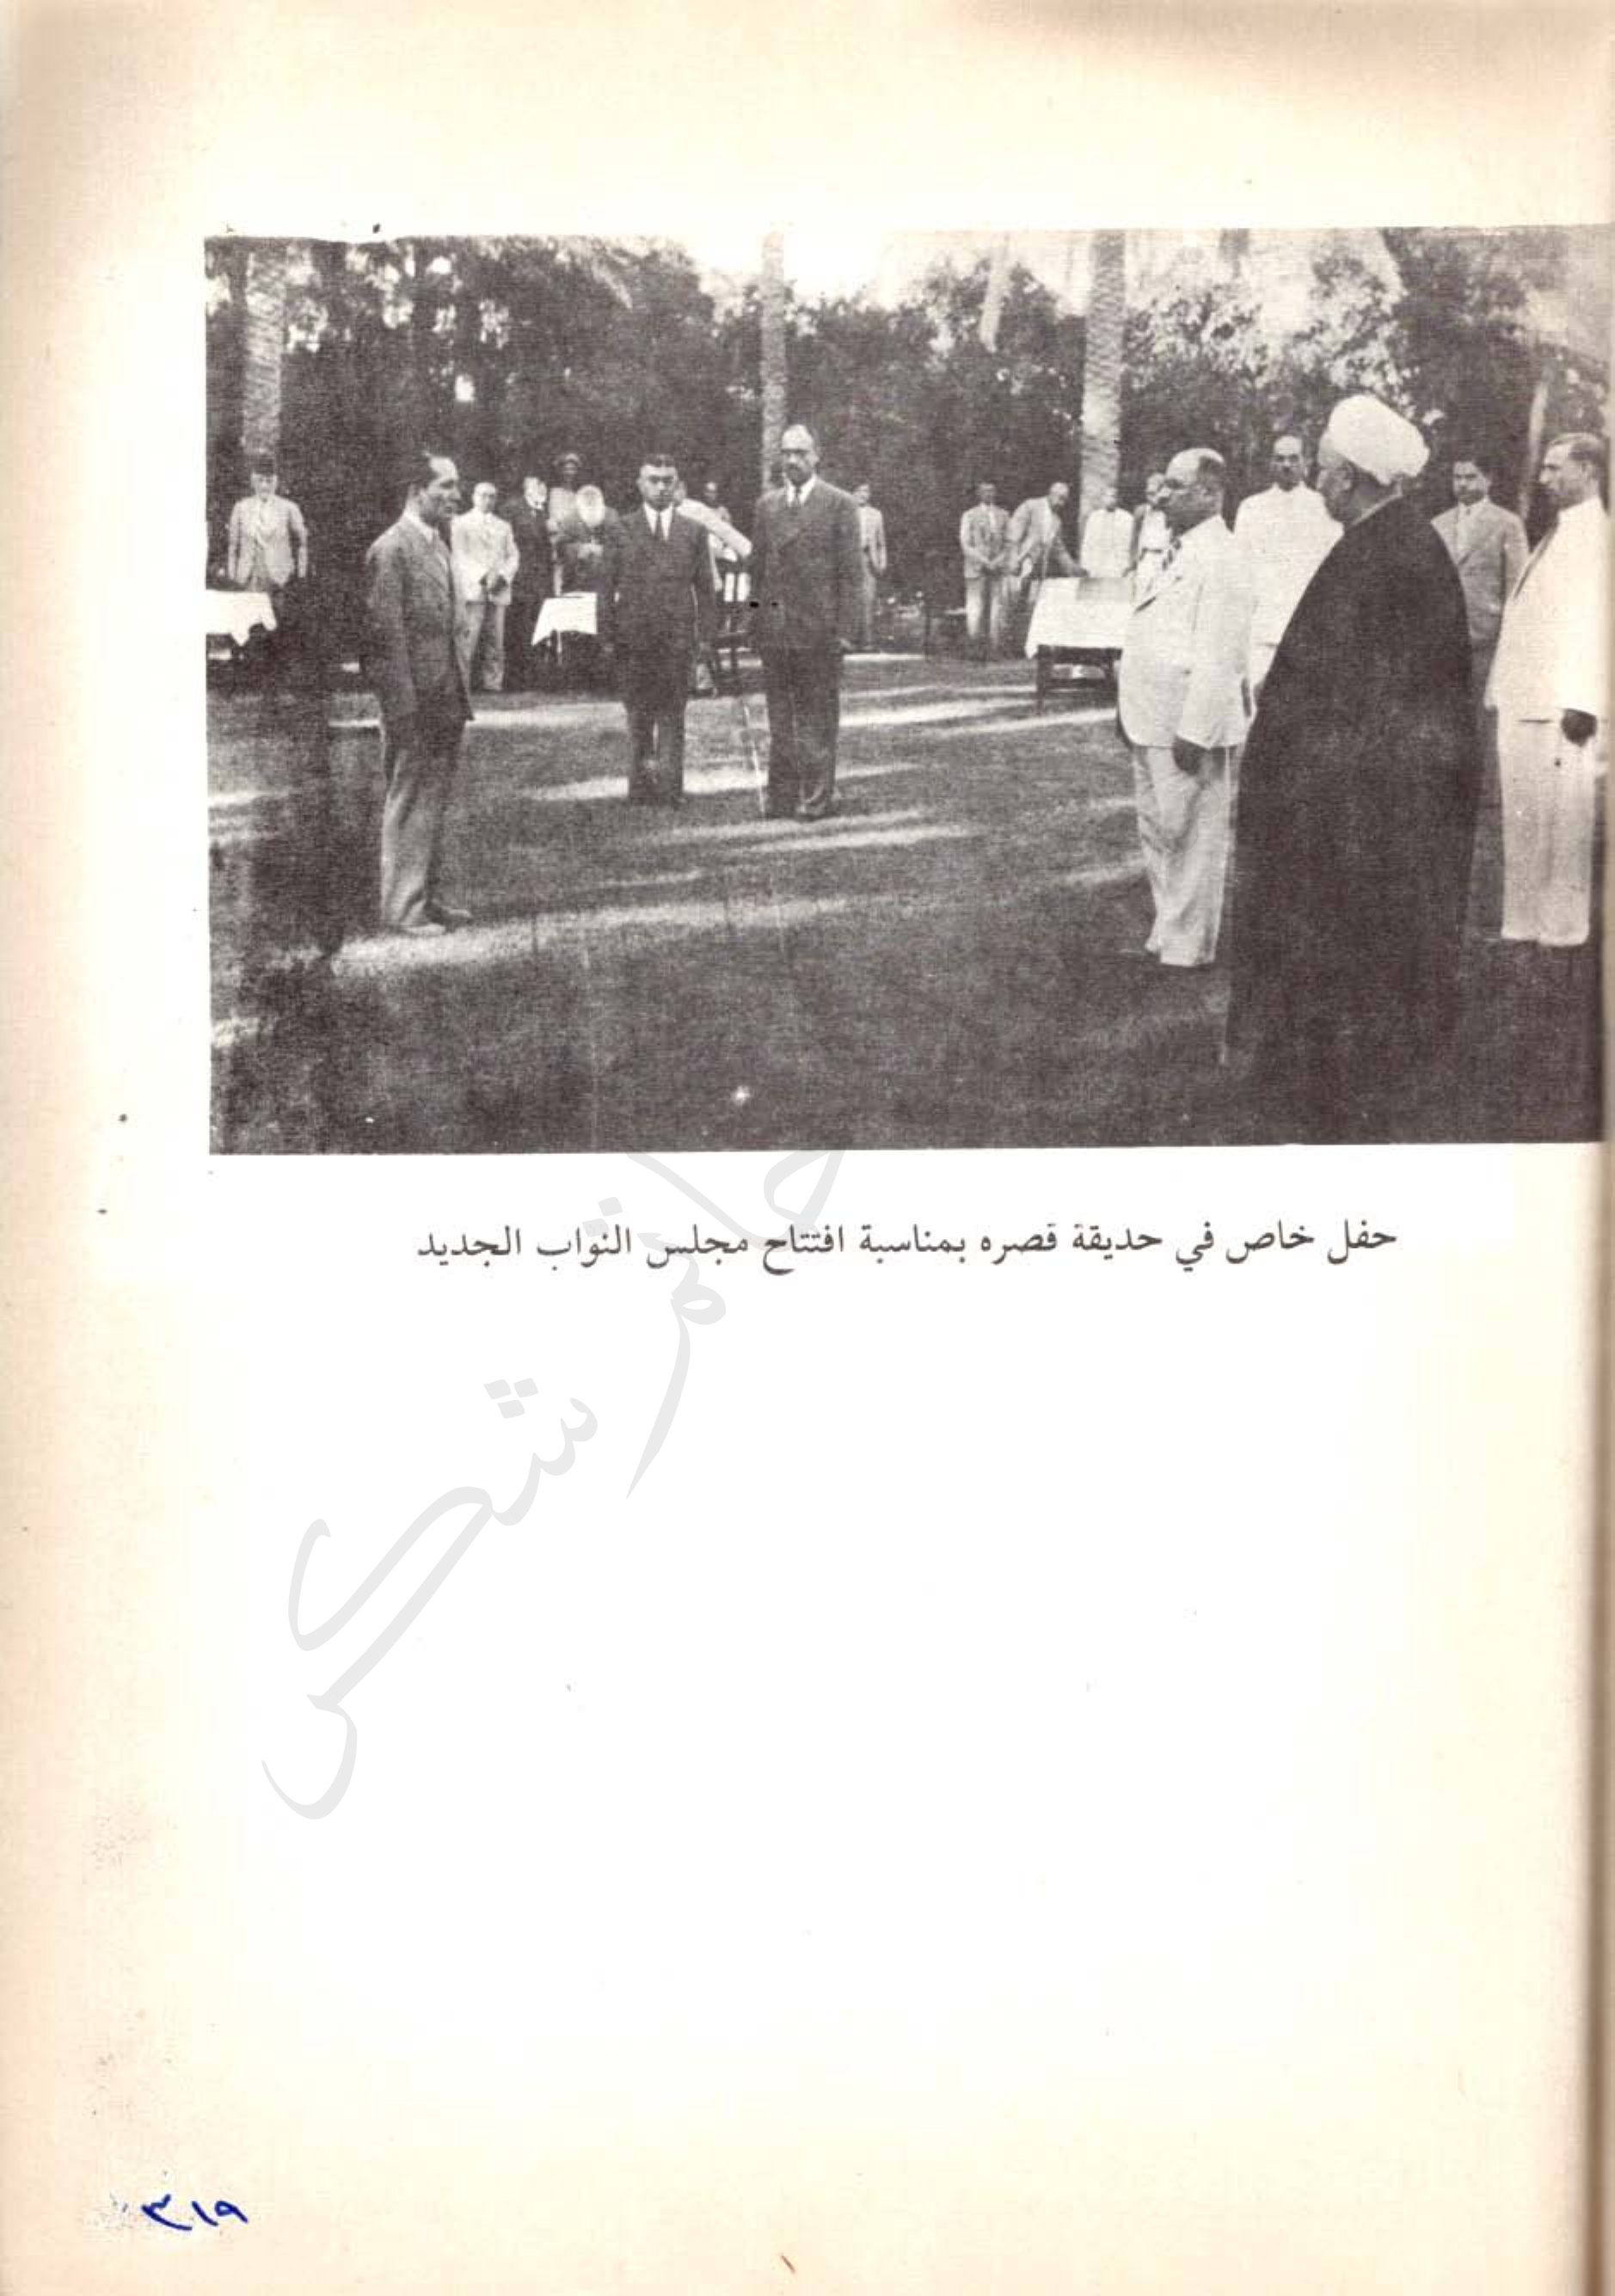 حفل خاص في حديقة قصره بمناسبة افتتاح مجلس النواب الجديد
٣١٩